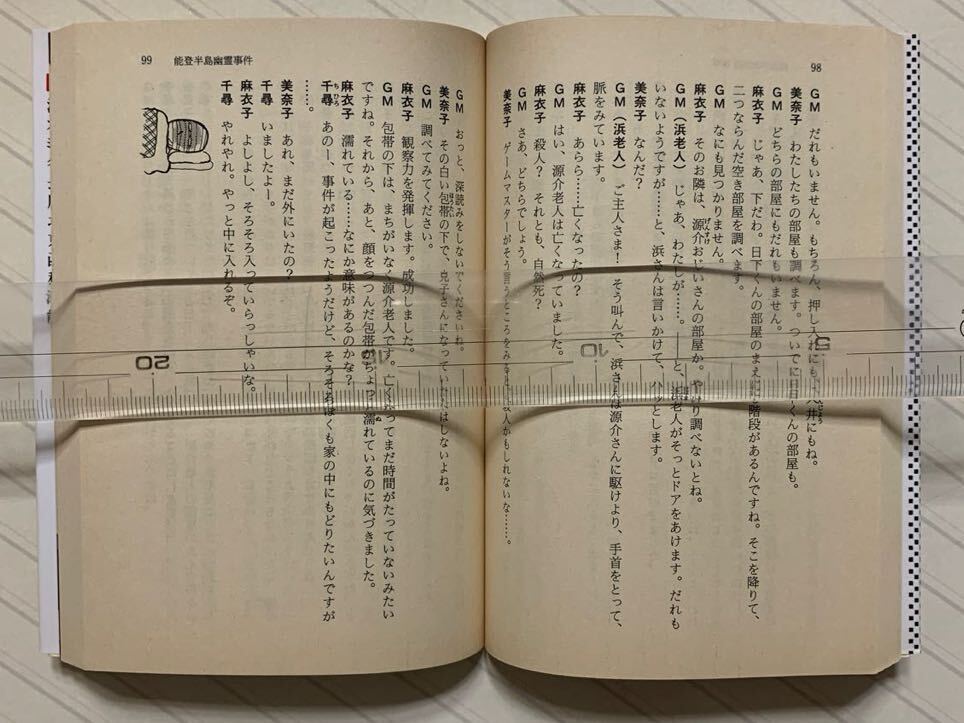 98
GM　だれもいません。もちろん、押し入れにも、天井にもね。
美奈子　わたしたちの部屋も調べます。ついでに日下くんの部屋も。
GM　どちらの部屋にもだれもいません。
麻衣子　じゃあ、下だわ。日下くんの部屋のまえに、階段があるんですね。そこを降りて、
二つならんだ空き部屋を調べます。
GM　なにも見つかりません。
麻衣子　そのお隣は、源介おじいさんの部屋か。やはり調べないとね。
GM（浜老人）　じゃあ、わたしが……。――と、浜老人がそっとドアをあけます。だれも
いないようですが……と、浜さんは言いかけて、ハッとします。
美奈子　なんだ？
GM（浜老人）　ご主人さま！　そう叫んで、浜さんは源介さんに駆けより、手首をとって、
脈をみています。
麻衣子　あらら……亡くなったの？
GM　はい、源介老人は亡くなっていました。
麻衣子　殺人？　それとも、自然死？
GM　さあ、どちらでしょう。
美奈子　ゲームマスターがそう言うところをみると、殺人かもしれないな……。
99　能登半島幽霊事件
GM　おっと、深読みをしないでくださいね。
美奈子　その白い包帯の下で、克子さんになっていたりはしないよね。
GM　調べてみてください。
麻衣子　観察力を発揮します。成功しました。
GM　包帯の下は、まちがいなく源介老人です。亡くなってまだ時間がたっていないみたい
ですね。それから、あと、顔をつつんだ包帯がちょっと濡れているのに気づきました。
麻衣子　濡れている……なにか意味があるのかな？
千尋　あのー、事件が起こったようだけど、そろそろぼくも家の中にもどりたいんですが
……。
美奈子　あれ、まだ外にいたの？
千尋　いましたよー。
麻衣子　よしよし、そろそろ入っていらっしゃいな。
千尋　やれやれ。やっと中に入れるぞ。
5
10
15
20